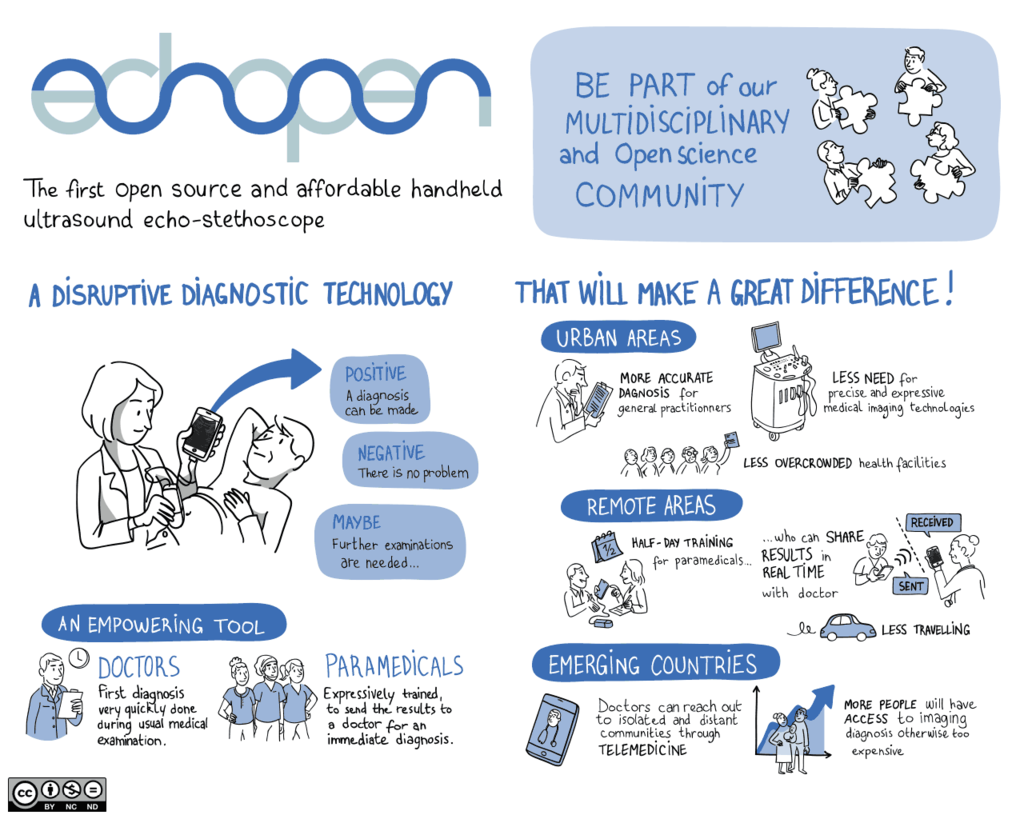 echopen
The first open source and affordable handheld
ultrasound echo-stethoscope
BE PART of our
MULTIDISCIPLINARY
and Open science
COMMUNITY
A DISRUPTIVE DIAGNOSTIC TECHNOLOGY
POSITIVE
A diagnosis
can be made
NEGATIVE
There is no problem
MAYBE
Further examinations
are needed...
AN EMPOWERING TOOL
DOCTORS
First diagnosis
very quickly done
during usual medical
examination.
PARAMEDICALS
Expressively trained,
to send the results to
a doctor for an
immediate diagnosis.
THAT WILL MAKE A GREAT DIFFERENCE!
URBAN AREAS
MORE ACCURATE
DAGNOSIS for
general practitionners
LESS NEED for
precise and expressive
medical imaging technologies
LESS OVERCROWDED health facilities
REMOTE AREAS
1/2
HALF-DAY TRAINING
for paramedicals...
...who can SHARE
RESULTS in
REAL TIME
with doctor
RECEIVED
SENT
LESS TRAVELLING
EMERGING COUNTRIES
Doctors can reach out
to isolated and distant
communities through
TELEMEDICINE
MORE PEOPLE will have
ACCESS to imaging
diagnosis otherwise too
expensive
cc
BY NC ND